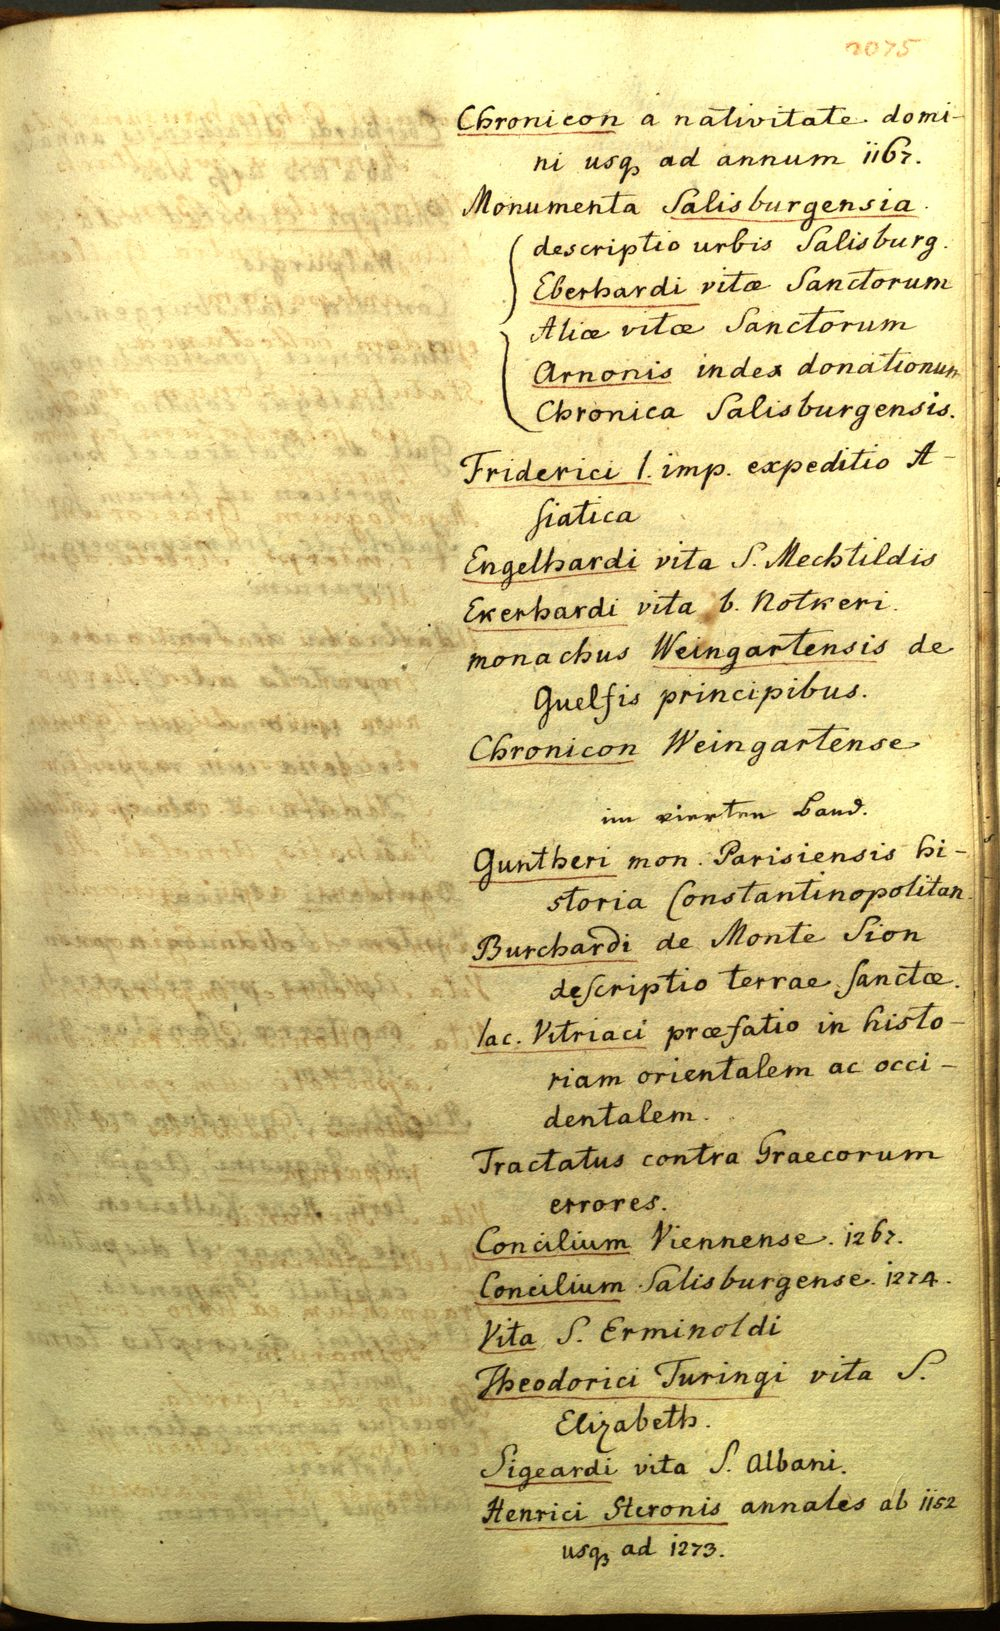 2075
Chronicon a nativitate domi-
ni usq ad annum 1167.
Monumenta Salisburgensia.
descriptio urbis Salisburg.
Eberhardi vitæ Sanctorum
Aliæ vitæ Sanctorum
Arnonis index donationum
Chronica Salisburgensis.
Friderici I. imp. expeditio A-
siatica
Engelhardi vita S. Mechtildis
Ekerhardi vita b. Notkeri.
monachus Weingartensis de
Guelfis principibus.
Chronicon Weingartense
im vierten Band.
Guntheri mon. Parisiensis hi-
storia Constantinopolitan.
Burchardi de Monte Sion
descriptio terrae sanctæ.
Iac. Vitriaci præfatio in histo-
riam orientalem ac occi-
dentalem.
Tractatus contra Graecorum
errores.
Concilium Viennense. 1267.
Concilium Salisburgense. 1274.
Vita S. Erminoldi
Theodorici Turingi vita S.
Elizabeth.
Sigeardi vita S. Albani.
Henrici Steronis annales ab 1152
usq ad 1273.